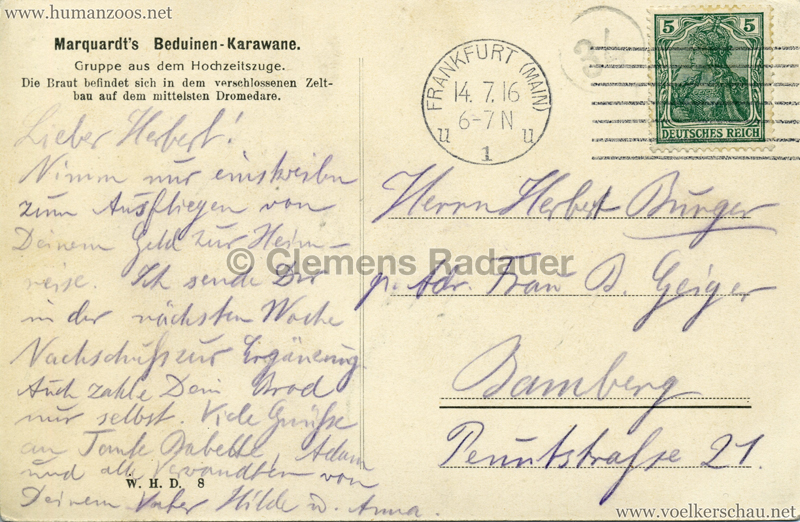 www.humanzoos.net
Marquardt's Beduinen-Karawane.
Gruppe aus dem Hochzeitszuge.
Die Braut befindet sich in dem verschlossenen Zelt-
bau auf dem mittelsten Dromedare.
FRANKFURT (MAIN)
14.7.16
6-7N
u u
1
5 5
DEUTSCHES REICH
Lieber Herbert!
Nimm nur einstweilen
zum Ausfliegen von
Deinem Geld zur Heim-
reise. Ich sende Dir
in der nächsten Woche
Nachschuss zur Ergänzung.
Auch zahle Dein Brod
nur selbst. Viele Grüsse
an Tante Babette, Adam
und alle Verwandten von
Deinem Vater Hilde u. Anna.
W. H. D. 8
Herrn Herbert Burger
p. Adr. Frau B. Geiger
Bamberg
21.
© Clemens Radauer
www.voelkerschau.net